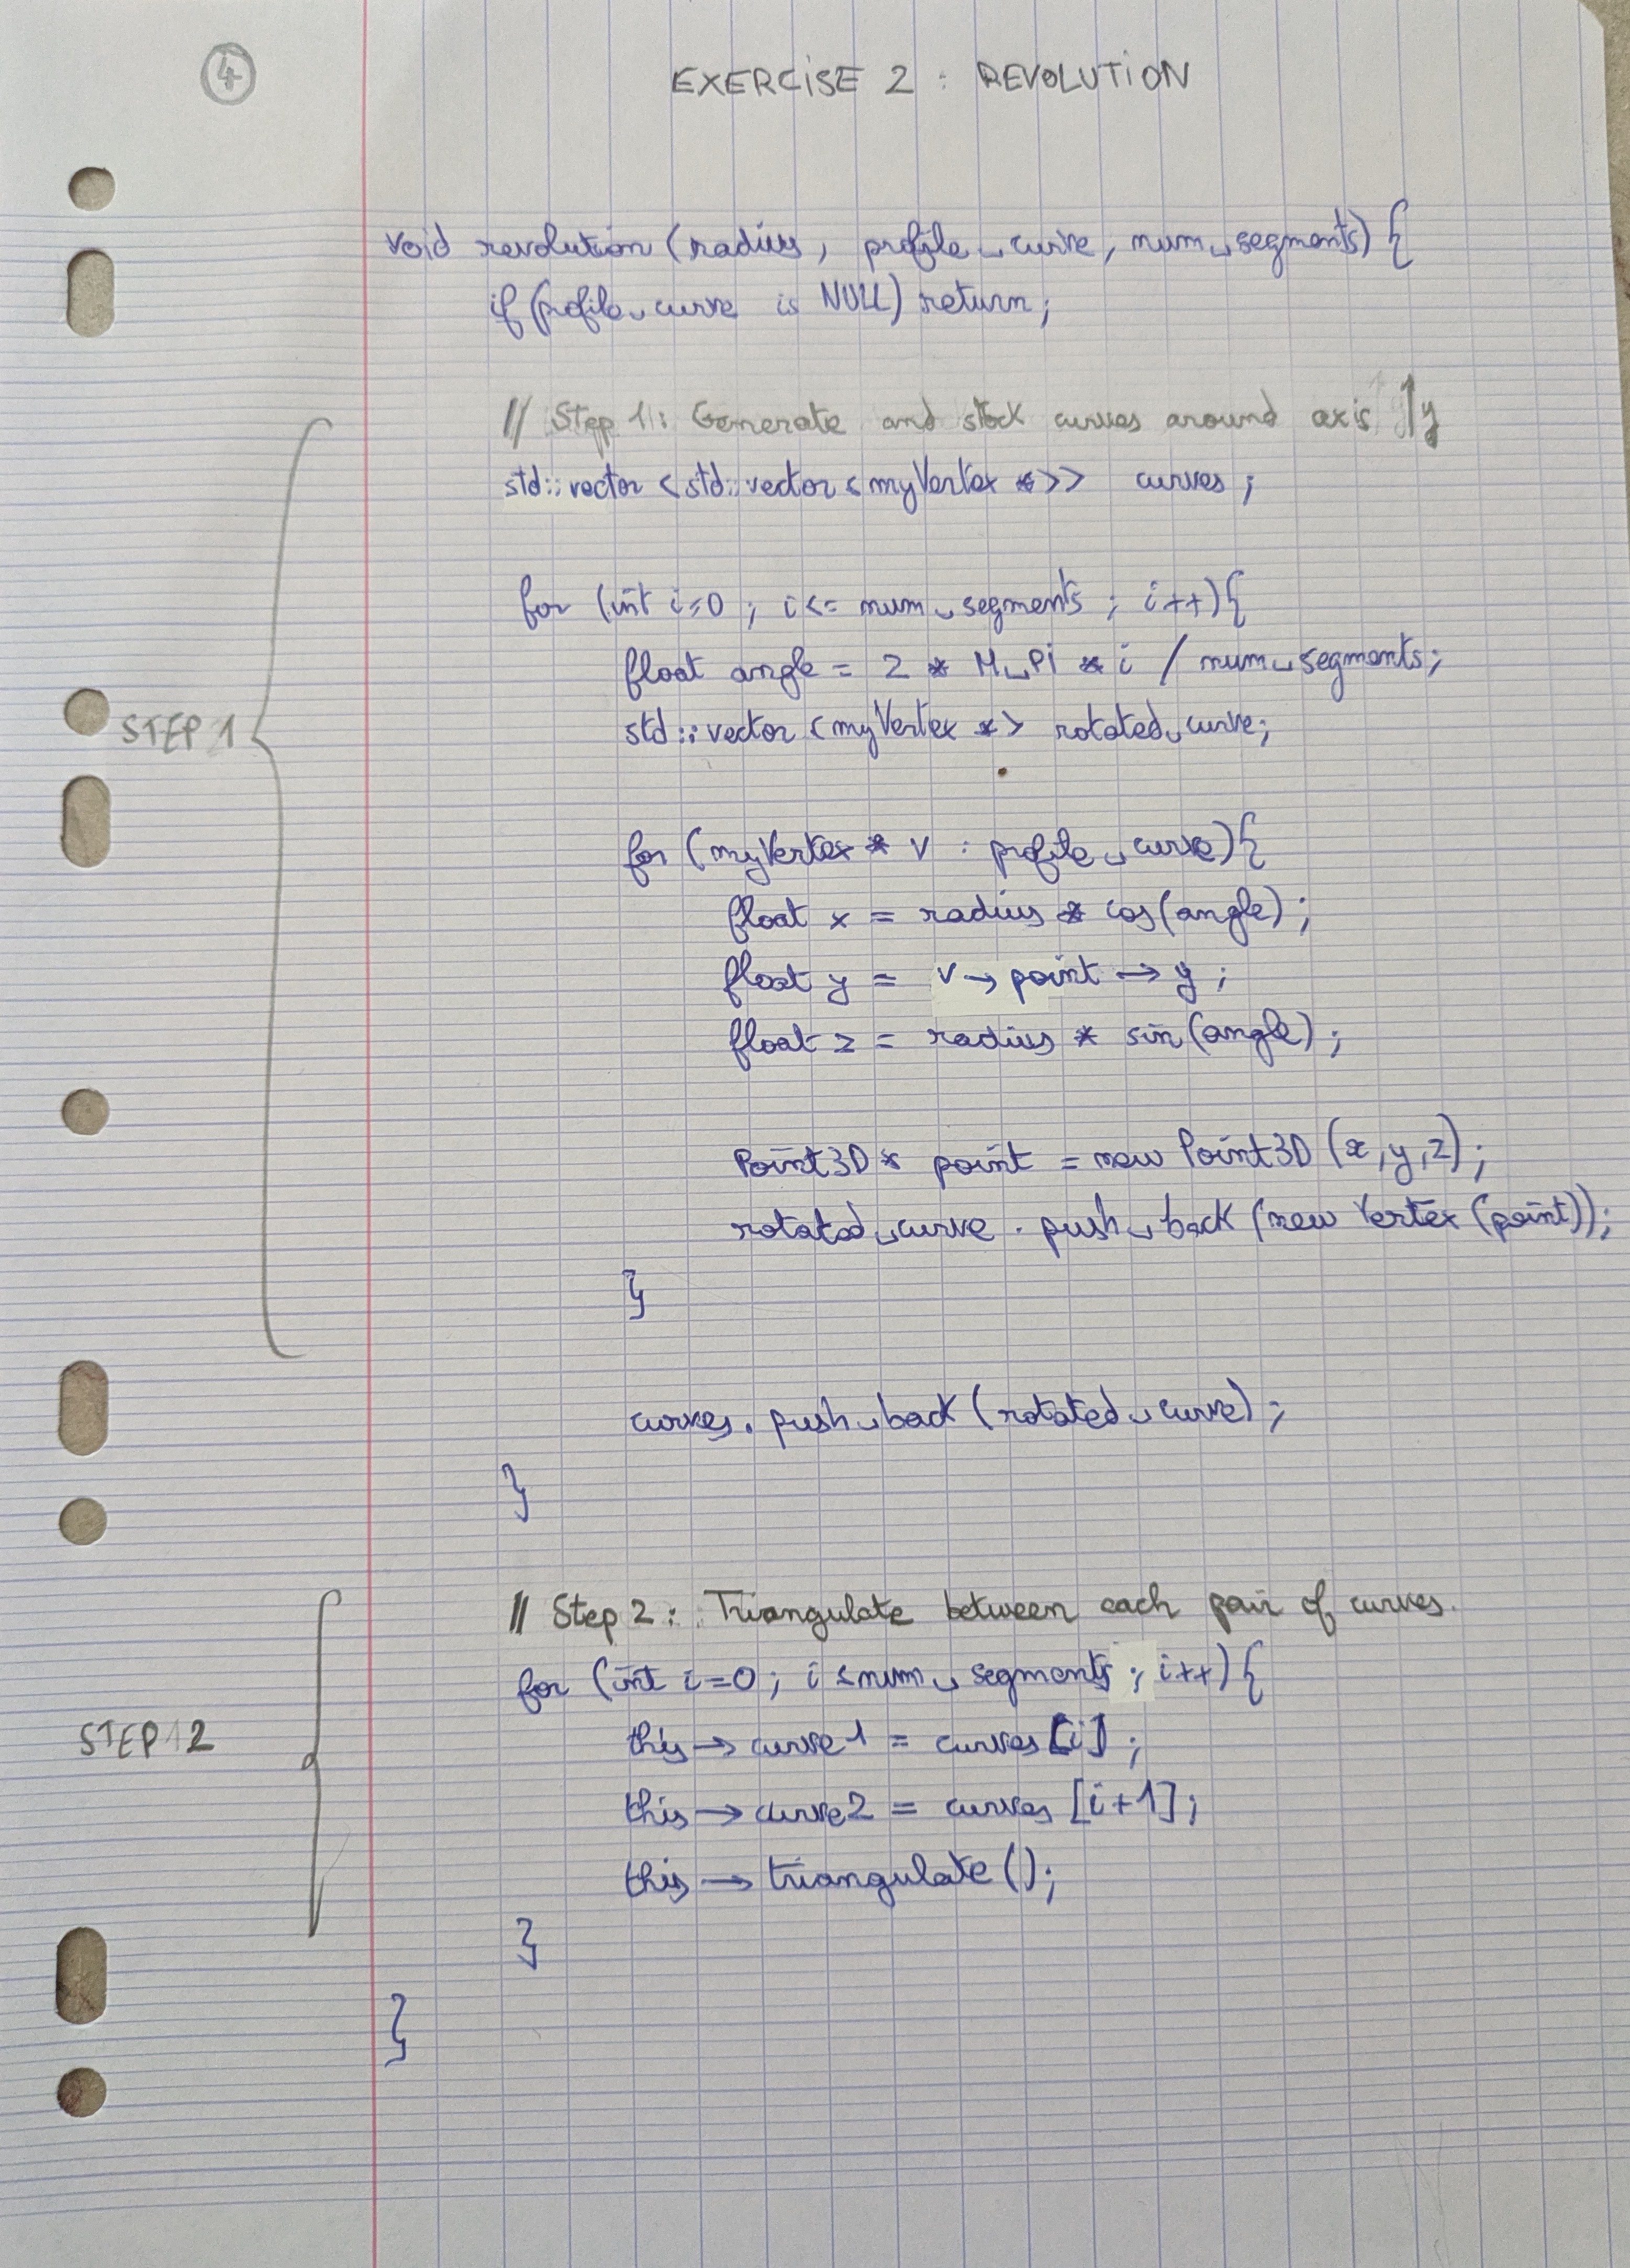 4
EXERCISE 2 : REVOLUTION
void revolution (radius, profile_curve, num_segments) {
if (profile_curve is NULL) return;
// Step 1: Generate and stock curves around axis y
std::vector <std::vector <myVertex *>> curves ;
for (int i=0 ; i<= num_segments ; i++){
float angle = 2 * M_PI * i / num_segments;
STEP 1
std::vector <myVertex *> rotated_curve;
for (myVertex * v : profile_curve){
float x = radius * cos(angle) ;
float y = v→point→y ;
float z = radius * sin(angle) ;
Point3D * point = new Point3D (x,y,z) ;
rotated_curve . push_back (new Vertex (point)) ;
}
curves. push_back (rotated_curve) ;
}
// Step 2 : Triangulate between each pair of curves.
for (int i=0 ; i <num_segments ; i++) {
STEP 2
this→curve1 = curves [i] ;
this→curve2 = curves [i+1] ;
this→triangulate () ;
}
}